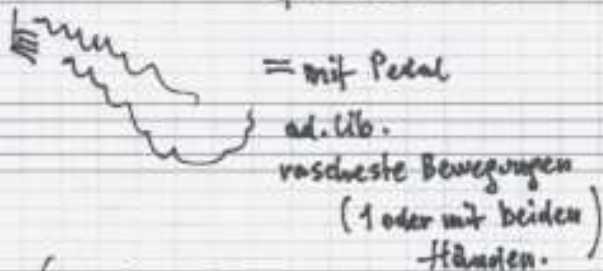 = mit Pedal
ad. lib.
rascheste Bewegungen
(1 oder mit beiden
Händen.)